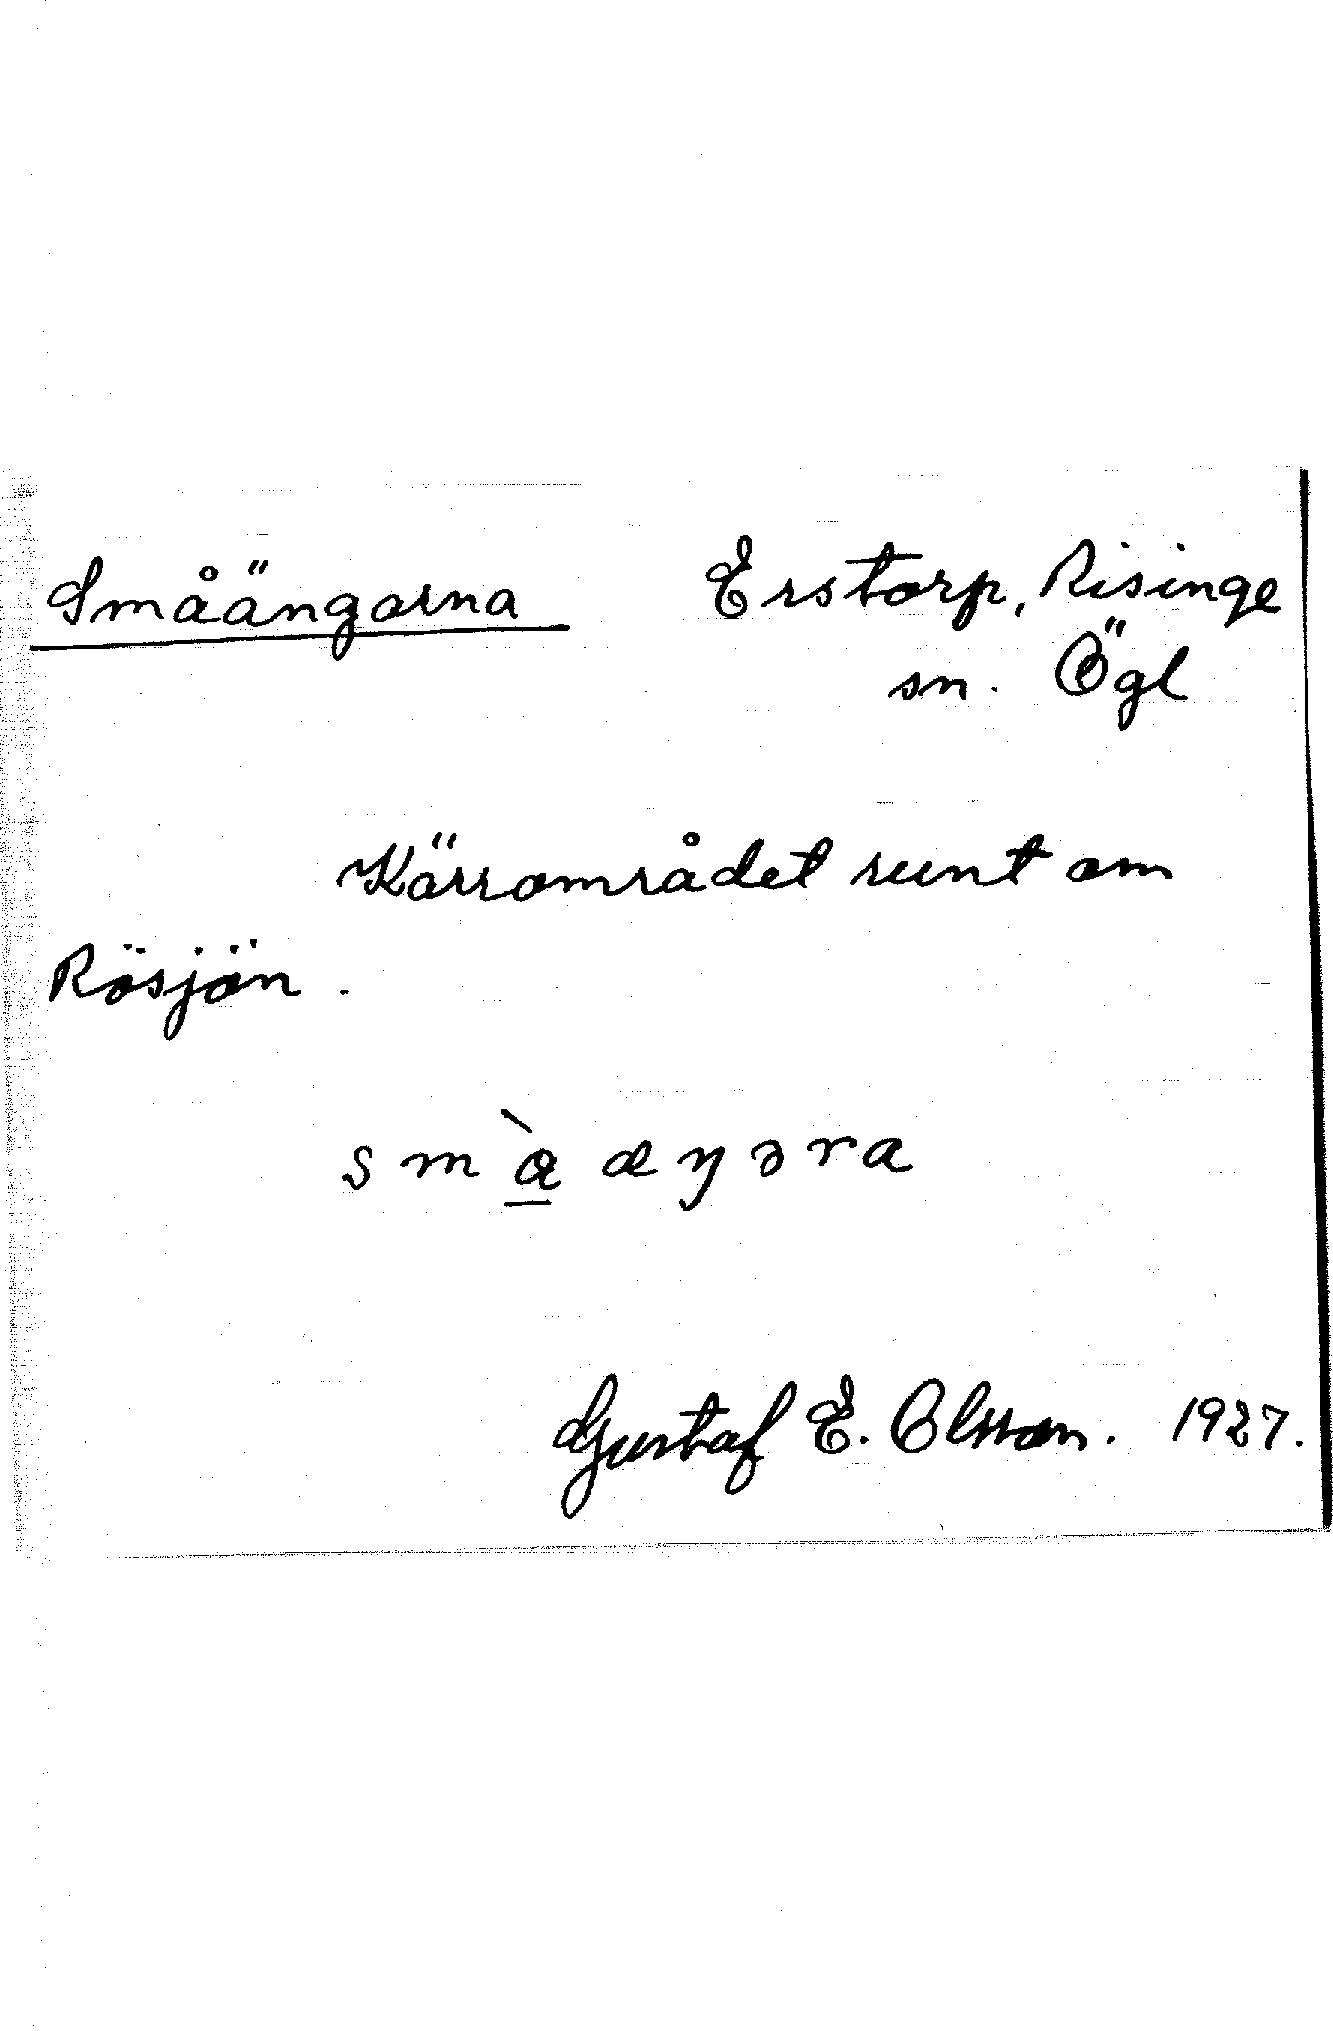 Småängarna Erstorp, Risinge
sn. Ögl
Kärrområdet runt om
Rösjön.
sm å̱̀ æŋəra
Gustaf E. Olsson. 1927.